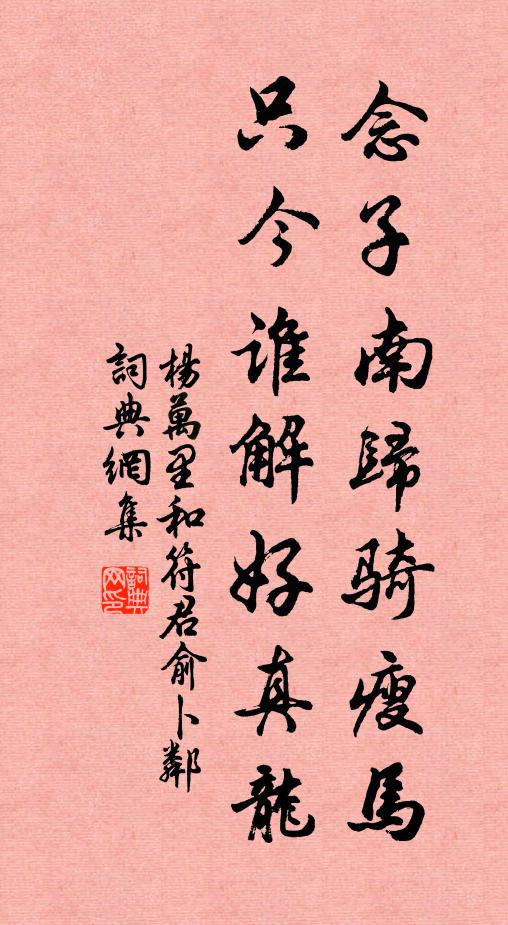 念子南歸骑瘦馬
只今誰解好真龍
楊萬里和符君俞卜鄰
詞典網集
詞典网印